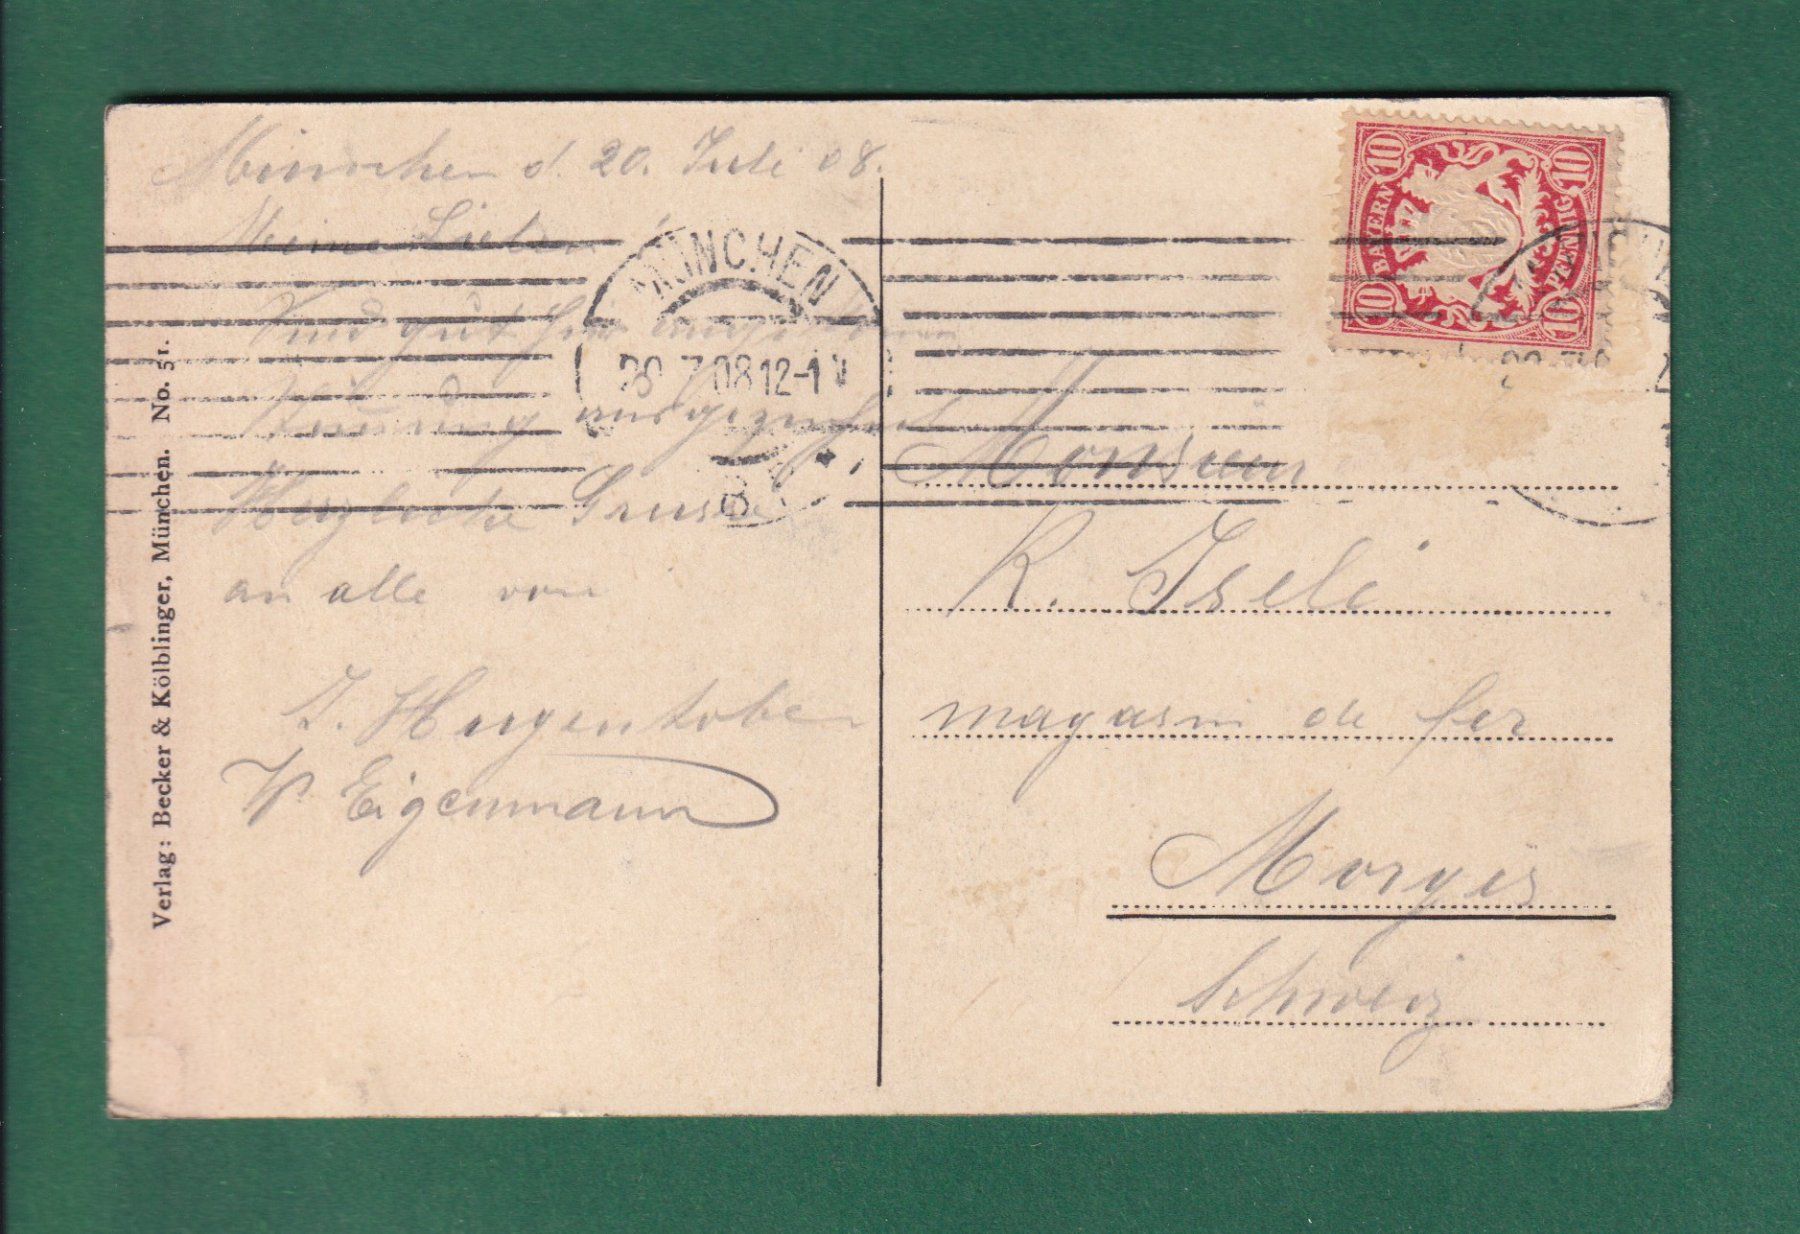 München d. 20. Juli 08.
Meine Lieben
Sind gut hier angekommen
ausgezeichnet
Herzliche Grüsse
an alle von
J. Hugentobler
W Eigenmann
Verlag: Becker & Kölblinger, München. No. 51.
MÜNCHEN
20.7.08 12-1 N
B.Z.
10 10
BAYERN
PFENNIG
10 10
Monsieur
R. Iseli
magasin de fer
Morges
Schweiz